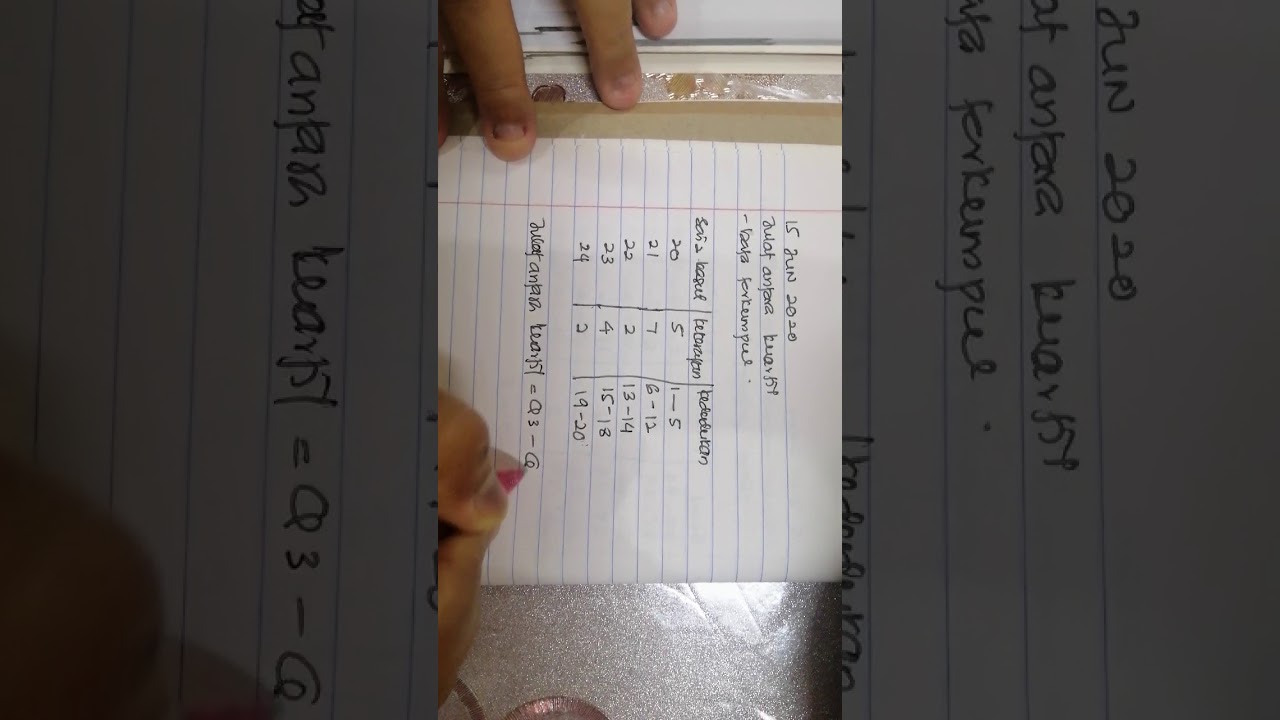 15 JUN 2020
Julat antara kuartil
- Data terkumpul.
Saiz kasut | kekerapan | kedudukan
20 5 1-5
21 7 6-12
22 2 13-14
23 4 15-18
24 2 19-20
Julat antara kuartil = Q3 - Q